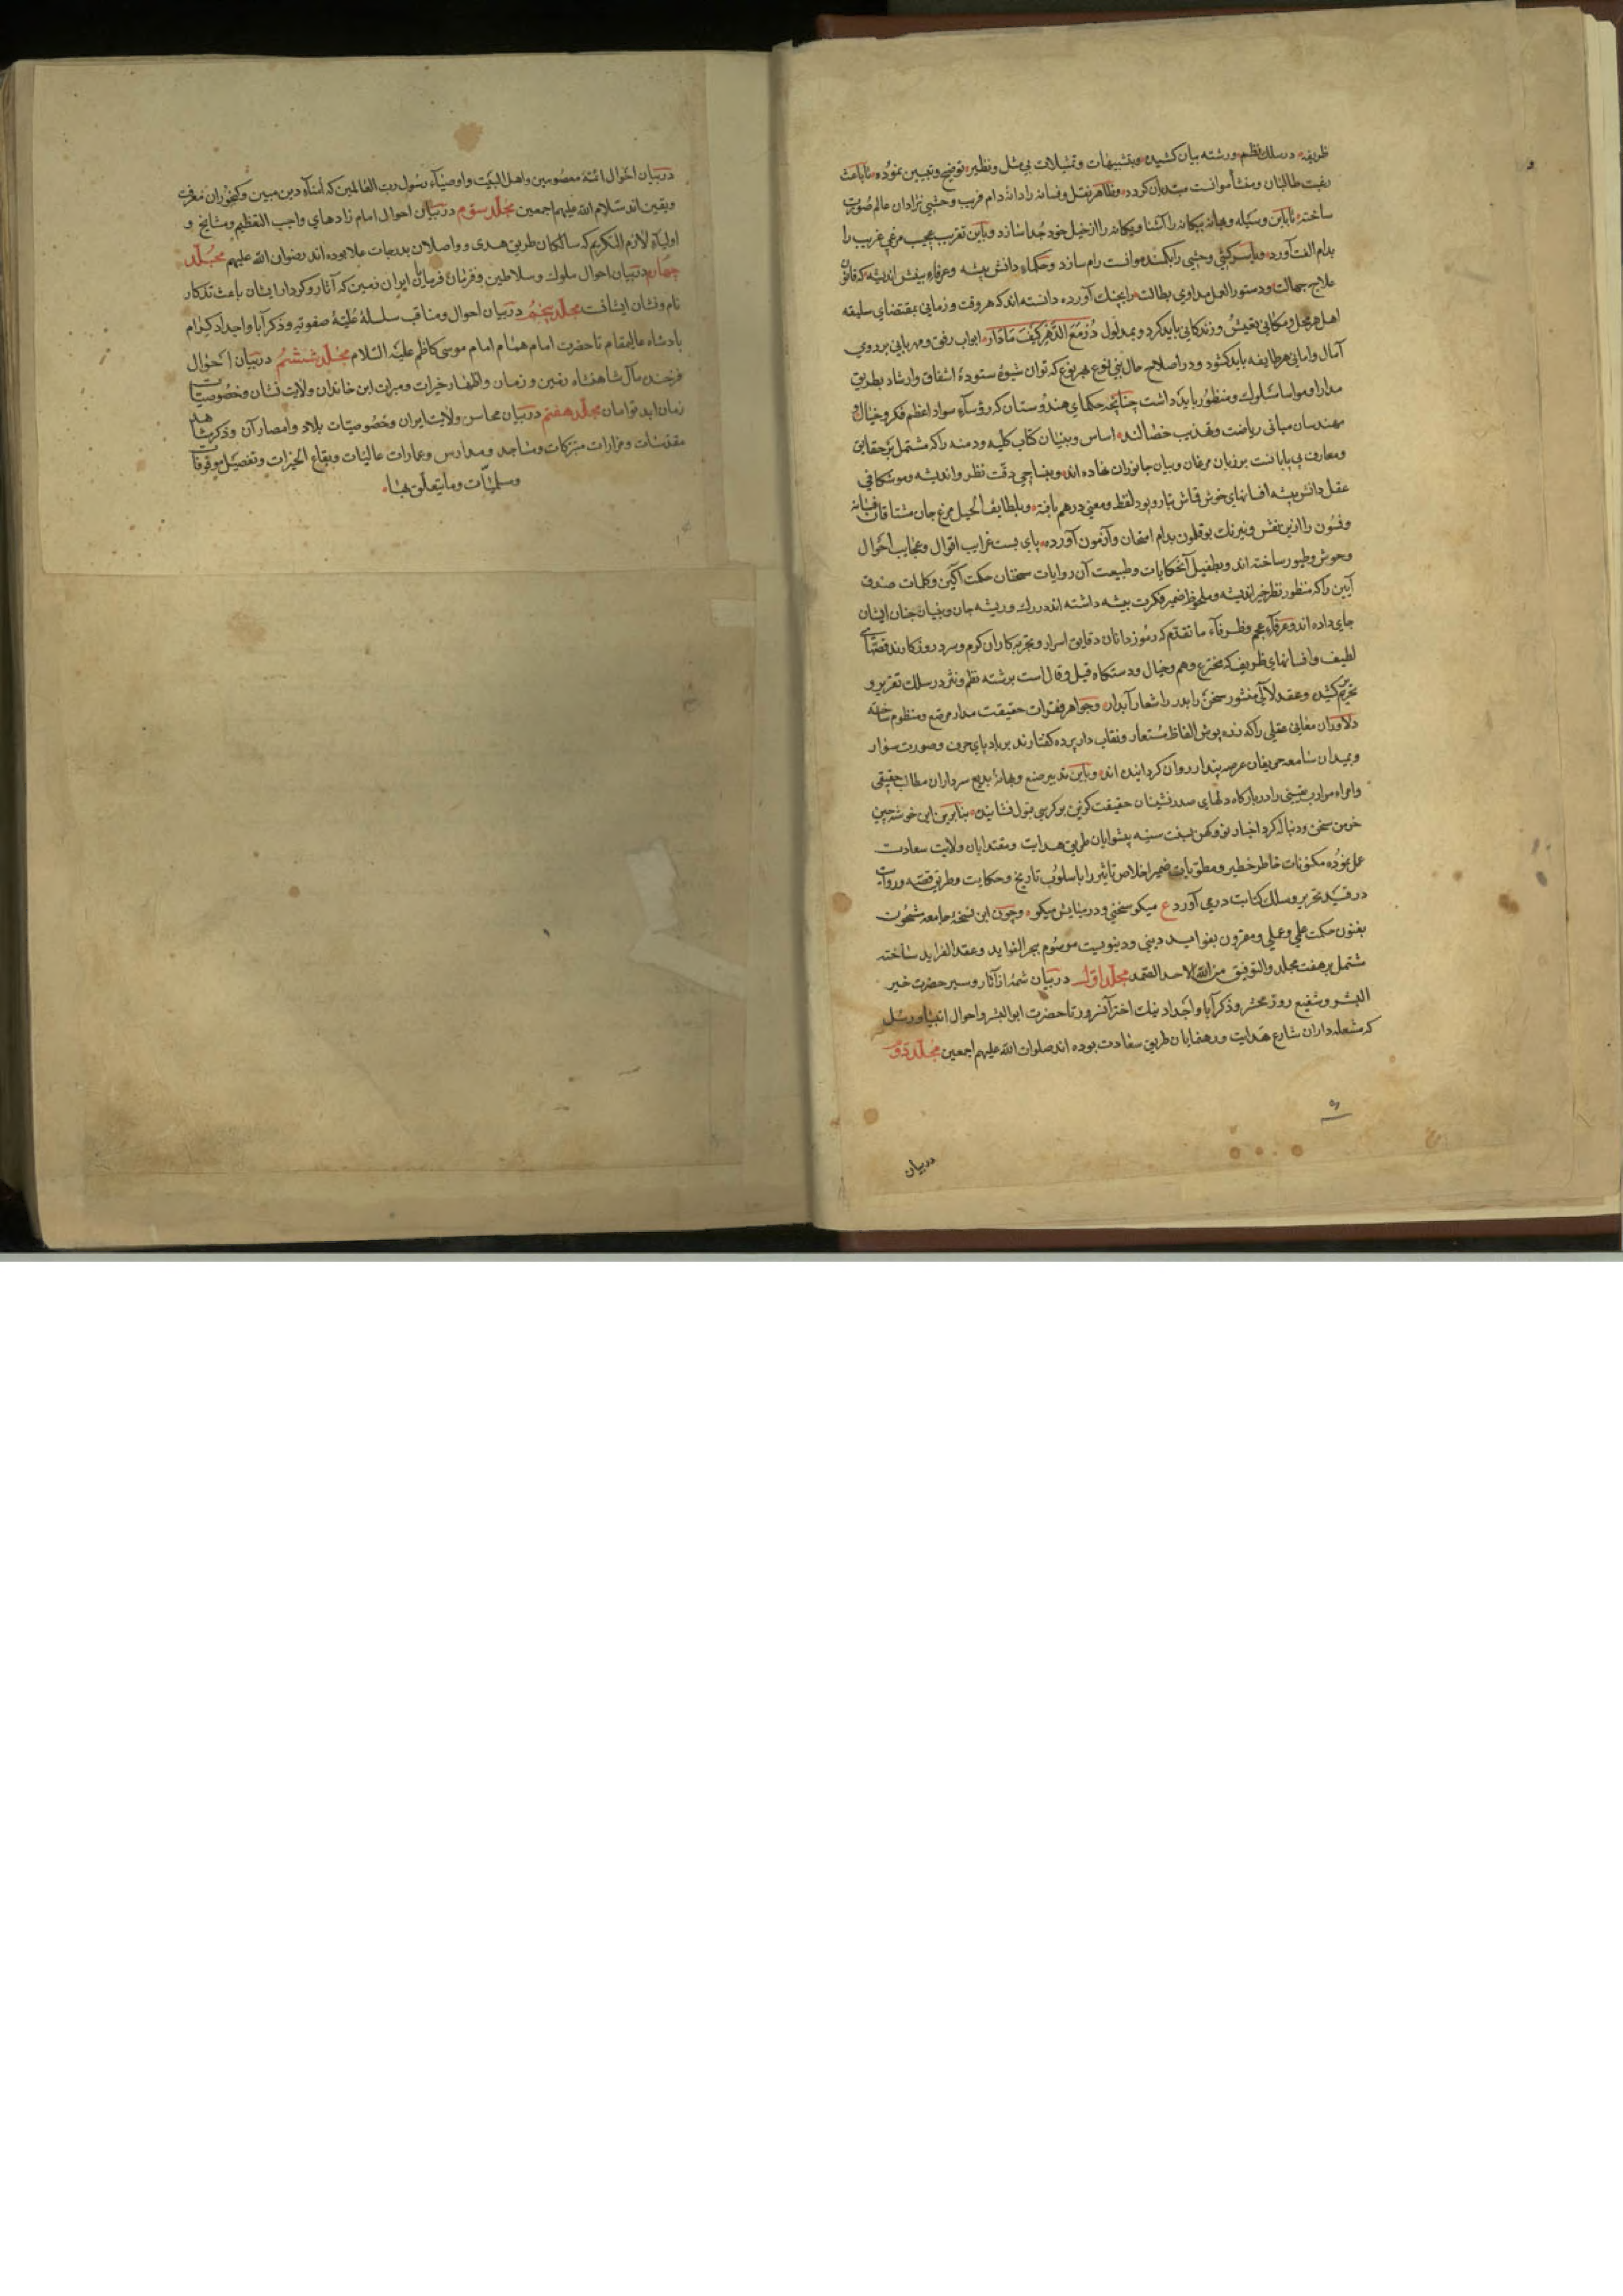 ظریفه در سلك نظم و رشته بیان کشیده و بتشبیهات و تمثیلات بی مثل و نظیر توضیح و تبیین نموده تا باعث
رغبت طالبان و منشأ موانست مبتدیان کردد و ظاهر نقل و فسانه را دانۀ دام فریب وحشی نژادان عالم صورت
ساخته تا باین وسیله و بهانه بیکانه را آشنا و یکانه را از خیل خود جدا سازد و باین تقریب عجیب مرغ غریب را
بدام الفت آورد و یا سرکش وحشی را بکمند موانست رام سازد و حکماء دانش پیشه و عرفاء بینش اندیشه که قانون
علاج جهالت و دستور العمل مداوای بطالت را بچنك آورده دانسته اند که هر وقت و زمانی بمقتضای سلیقه
اهل هر محل و مکانی تعیش و زندکانی باید کرد و بمدلول دُرْ مَعَ الدَّهْرِ كَيْفَ مَا دَارَ ابواب رفق و مهربانی بر روی
آمال و امانی هر طایفه باید کشود و در اصلاح حال بنی نوع بهر نوع که توان شیوۀ ستودۀ اشفاق و ارشاد بطریق
مدارا و مواسا سلوك و منظور باید داشت چنانچه حکمای هندوستان که رؤسآء سواد اعظم فکر و خیال و
مهندسان مبانی ریاضت و تهذیب خصالند اساس و بنیان کتاب کلیله و دمنه را که مشتمل بر حقایق
و معارف بی پایانست بر زبان مرغان و بیان جانوران نهاده اند و بنساجی دقت نظر و اندیشه و موشکافی
عقل دانش پیشه افسانهای خوش قماش بتار و پود لفظ و معنی درهم بافته و بلطایف الحیل مرغ جان مشتاقان فسانه
و فسون را ازین نقش و نیرنك بوقلمون بدام امتحان و آزمون آورده پای بست غرایب اقوال و عجایب احوال
وحوش و طیور ساخته اند و بطفیل آنحکایات و طبیعت آن روایات سخنان حکمت آکین و کلمات صدق
آیین را که منظور نظر خیر اندیشه و ملحوظ ضمیر فکرت پیشه داشته اند در رك و ریشه جان و بنیان جنان ایشان
جای داده اند و عرفآء عجم و ظرفآء ما تقدم که رموز دانان دقایق اسرار و تجربه کاران کرم و سرد روزکارند قصهای
لطیف و افسانهای ظریف که مخترع وهم و خیال و دستکاه قیل و قال است برشته نظم و نثر در سلك تقریر و
تحریر کشیده و عقد لآلی منثور سخن را بدرر اشعار آبدار و جواهر فقرات حقیقت مدار مرصع و منظوم ساخته
دلاوران معانی عقلی را که زنده پوش الفاظ مستعار و نقاب دار پرده کفتارند بر باد پای حرف و صورت سوار
و بمیدان سامعه حریفان عرصه پندار روان کردانیده اند و باین تدبیر صنع و بهانۀ بدیع سرداران مطالب حقیقی
و امراء موارب یقینی را در بارکاه دلهای صدر نشینان حقیقت کزین بر کرسی قبول نشانیده بنابرین این خوشه چین
خرمن سخن و دنباله کرد اخبار نو و کهن بسنت سنیه پیشوایان طریق هدایت و مقتدایان ولایت سعادت
عمل نموده مکنونات خاطر خطیر و مطویات ضمیر اخلاص تاثیر را باسلوب تاریخ و حکایت و طرز قصه و روایت
در قید تحریر و سلك کتابت درمی آورد ع میکو سخنی و در میانش میکو و چون این نسخۀ جامعه مشحون
بفنون حکمت علمی و عملی و مقرون بفواید دینی و دنیویست موسوم ببحر الفواید و عقد الفراید ساخته
مشتمل بر هفت مجلد و التوفیق من الله الاحد الصمد مجلد اول در بیان شمۀ از آثار و سیر حضرت خیر
البشر و شفیع روز محشر و ذکر آبا و اجداد نیك اختر آنسرور تا حضرت ابو البشر و احوال انبیا و رسل
که مشعله داران شارع هدایت و رهنمایان طریق سعادت بوده اند صلوات الله علیهم اجمعین مجلد دوم
در بیان
در بیان احوال ائمۀ معصومین و اهل البیت و اوصیآء رسول رب العالمین که امنآء دین مبین و کنجوران معرفت
و یقین اند سلام الله علیهم اجمعین مجلد سوم در بیان احوال امام زادهای واجب التعظیم و مشایخ و
اولیآء لازم التکریم که سالکان طریق هدی و واصلان بدرجات علا بوده اند رضوان الله علیهم مجلد
چهارم در بیان احوال ملوك و سلاطین و قرمان فرمایان ایران زمین که آثار و کردار ایشان باعث تذکار
نام و نشان ایشانست مجلد پنجم در بیان احوال و مناقب سلسلۀ علیّۀ صفویه و ذکر آبا و اجداد کرام
پادشاه عالیمقام تا حضرت امام همام امام موسی کاظم علیه السلام مجلد ششم در بیان احوال
فرخنده مآل شاهنشاه زمین و زمان و اظهار خیرات و مبرات این خاندان ولایت نشان و خصوصیات
زمان ابد توامان مجلد هفتم در بیان محاسن ولایت ایران و خصوصیات بلاد و امصار آن و ذکر مشاهد
مقدسات و مزارات متبرکات و مساجد و مدارس و عمارات عالیات و بقاع الخیرات و تفصیل موقوفات
و مسلمیّات و ما یتعلّق بهٰا